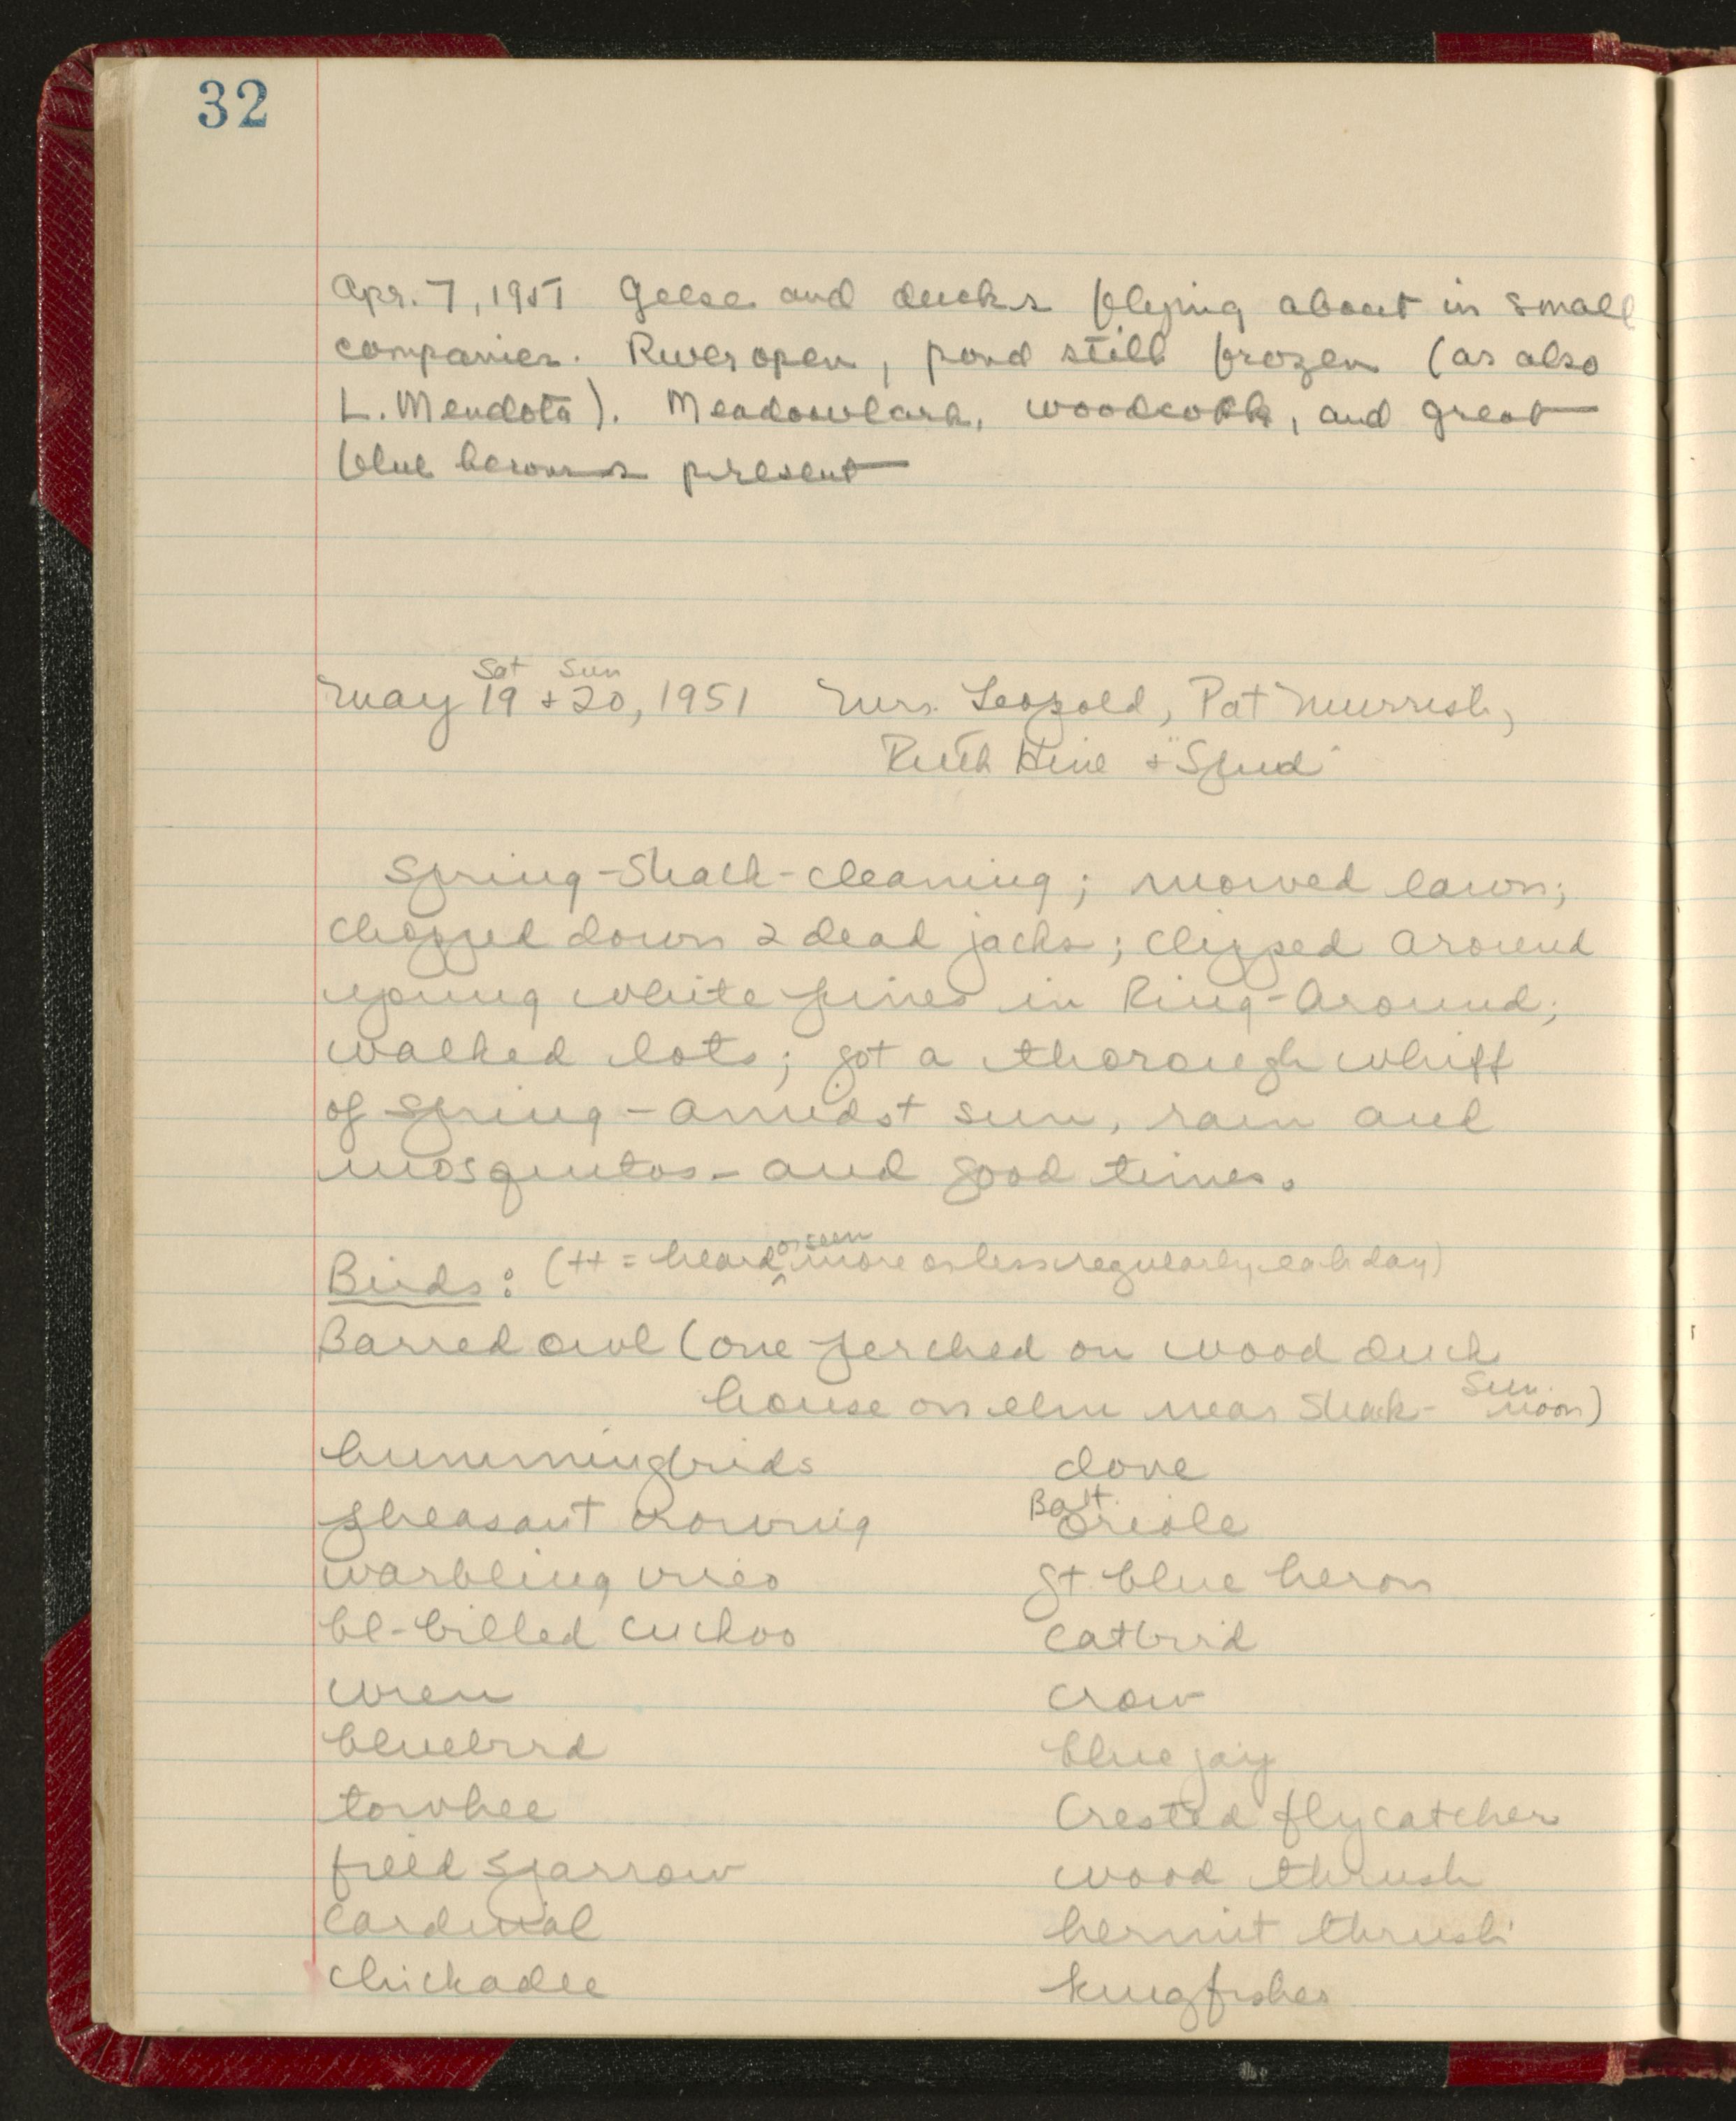 32
Apr. 7, 1951 Geese and ducks flying about in small
companies. River open, pond still frozen (as also
L. Mendota). Meadowlark, woodcock, and great
blue herons present
Sat Sun
May 19 + 20, 1951 Mrs. Leopold, Pat Murrish,
Ruth Hine + "Spud"
Spring-Shack-cleaning; mowed lawn;
chopped down 2 dead jacks; clipped around
young white pines in Ring-Around;
walked lots; got a thorough whiff
of spring - amidst sun, rain and
mosquitos - and good times.
or seen
Birds: (++ = heard more or less regularly each day)
Barred owl (one perched on wood duck
house on elm near Shack - Sun. noon)
hummingbirds dove
pheasant crowing Balt. Oriole
warbling vireo gt blue heron
bl-billed cuckoo catbird
wren crow
bluebird blue jay
towhee Crested flycatcher
field sparrow wood thrush
cardinal hermit thrush
chickadee kingfisher